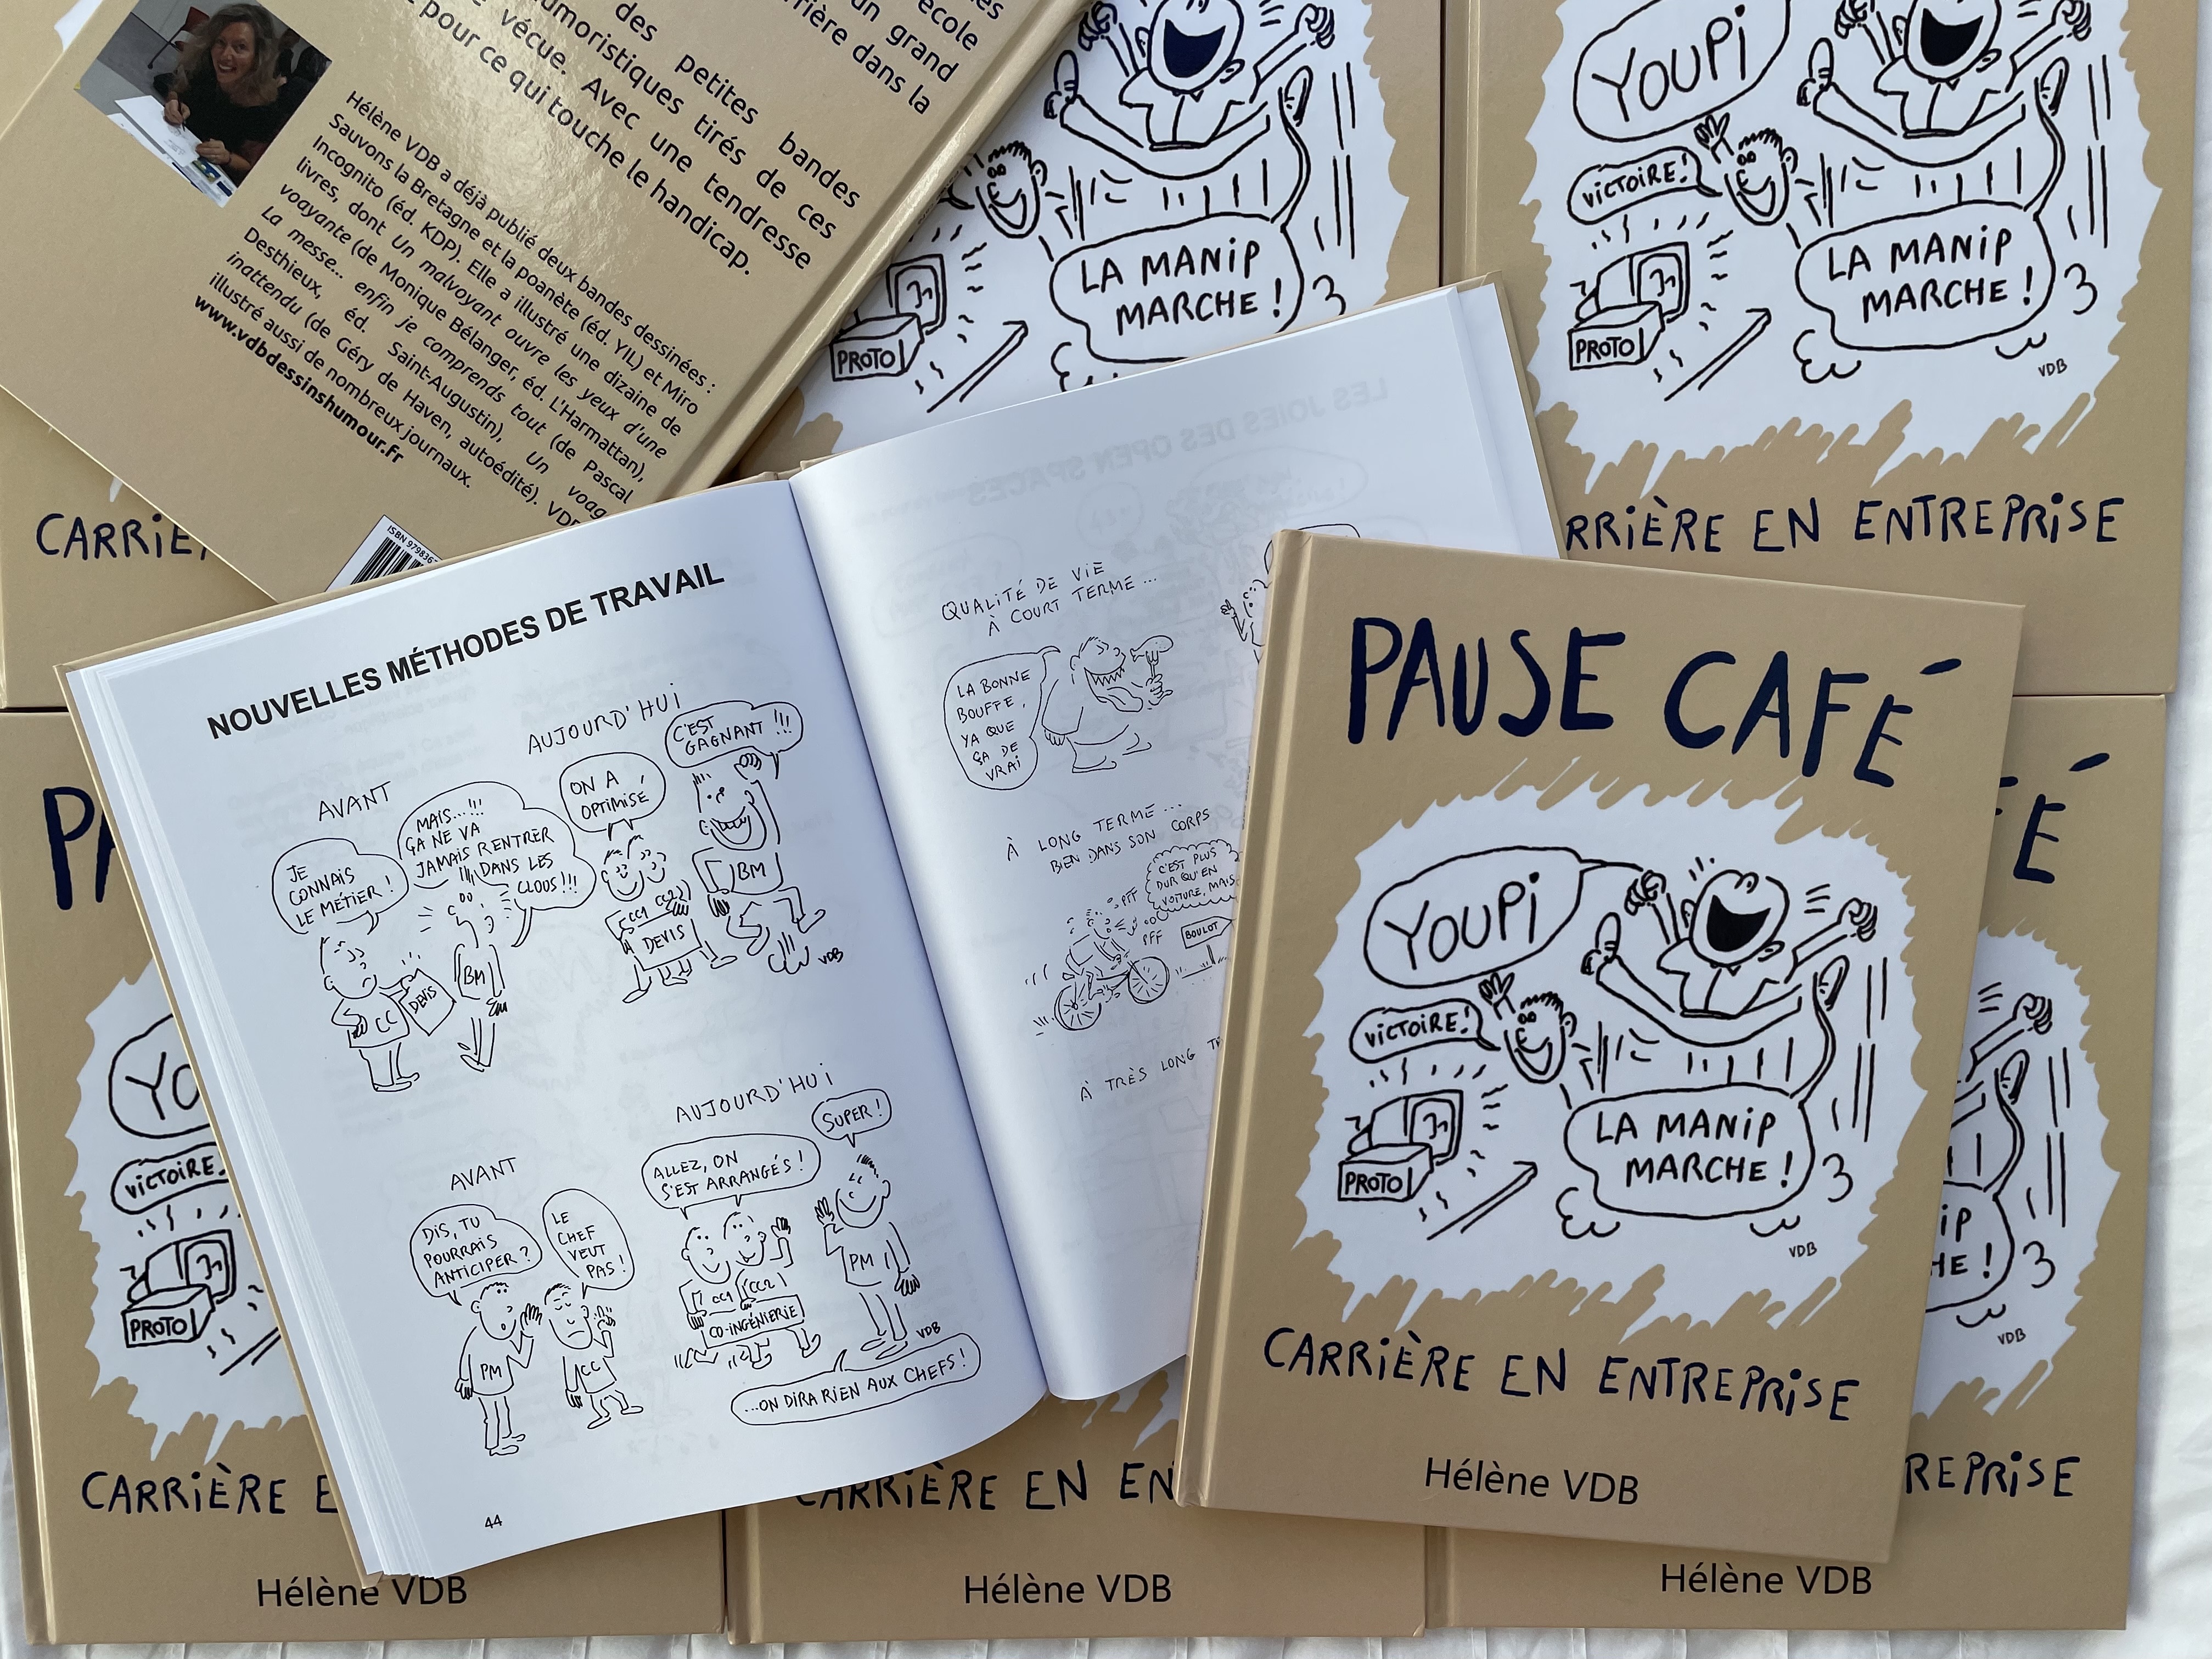 école
un grand
rrière dans la
des petites bandes
umoristiques tirés de ces
vécue. Avec une tendresse
pour ce qui touche le handicap.
Hélène VDB a déjà publié deux bandes dessinées :
Sauvons la Bretagne et la poanète (éd. YIL) et Miro
Incognito (éd. KDP). Elle a illustré une dizaine de
livres, dont Un malvoyant ouvre les yeux d'une
voayante (de Monique Bélanger, éd. L'Harmattan),
La messe... enfin je comprends tout (de Pascal
Desthieux, éd. Saint-Augustin), Un voag
inattendu (de Géry de Haven, autoédité). VDB
illustré aussi de nombreux journaux.
www.vdbdessinshumour.fr
ISBN 979836
LA MANIP
MARCHE !
PROTO
YOUPI
VICTOIRE !
LA MANIP
MARCHE !
PROTO
VDB
CARRIÈ
RRIÈRE EN ENTREPRISE
NOUVELLES MÉTHODES DE TRAVAIL
AVANT
AUJOURD'HUI
JE
CONNAIS
LE MÉTIER !
MAIS...!!!
ÇA NE VA
JAMAIS RENTRER
DANS LES
CLOUS !!!
ON A
OPTIMISÉ
C'EST
GAGNANT !!!
CC
DEVIS
BM
CC1 CC2
DEVIS
BM
VDB
AVANT
AUJOURD'HUI
DIS, TU
POURRAIS
ANTICIPER ?
LE
CHEF
VEUT
PAS !
ALLEZ, ON
S'EST ARRANGÉS !
SUPER !
PM
CC
CC1 CC2
CO-INGÉNIERIE
PM
VDB
...ON DIRA RIEN AUX CHEFS !
44
LES JOIES DES OPEN SPACES
QUALITÉ DE VIE
À COURT TERME ...
LA BONNE
BOUFFE,
YA QUE
ÇA DE
VRAI
À LONG TERME ...
BIEN DANS SON CORPS
C'EST PLUS
DUR QU'EN
VOITURE, MAIS
PFF
PFF
BOULOT
À TRÈS LONG TE
PAUSE CAFÉ
YOUPI
VICTOIRE !
LA MANIP
MARCHE !
PROTO
VDB
CARRIÈRE EN ENTREPRISE
Hélène VDB
PA
YO
VICTOIRE
PROTO
CARRIÈRE E
Hélène VDB
CARRIÈRE EN EN
Hélène VDB
FÉ
IP
HE !
VDB
REPRISE
Hélène VDB